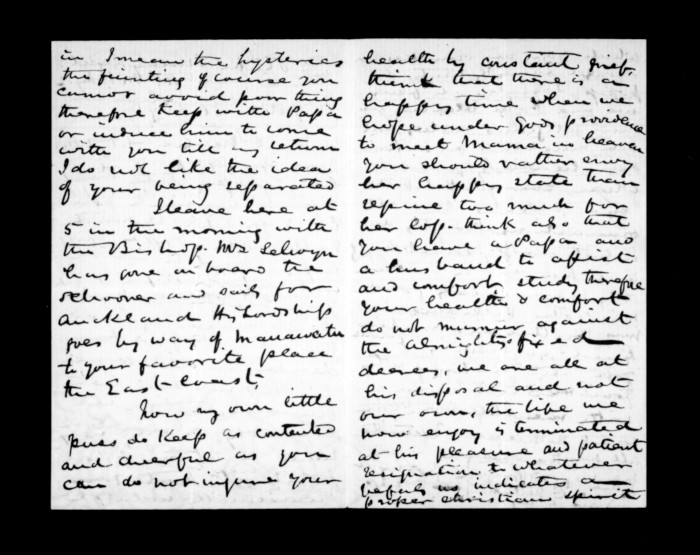 in I mean the hysterics
the fainting of course you
cannot avoid poor thing
therefore Keep with Papa
or induce him to come
with you till my return
I do not like the idea
of your being separated
I leave here at
5 in the morning with
the Bishop. Mrs Selwyn
has gone on board the
schooner and sails for
Auckland His Lordship
goes by way of Manawatu
to your favorite place
the East Coast,
now my own little
puss do Keep as contented
and cheerful as you
can do not injure your
health by constant grief,
think that there is a
happy time when we
hope under Gods providence
to meet Mama in heaven
you should rather envy
her happy state than
repine too much for
her loss. think also that
you have a Papa and
a husband to assist
and comfort, study therefore
your health & comfort
do not murmur against
the Almightys fixed
decrees, we are all at
his disposal and not
our own, the life we
now enjoy is terminated
at his pleasure and patient
resignation to whatever
befals us indicates a
proper christian spirit